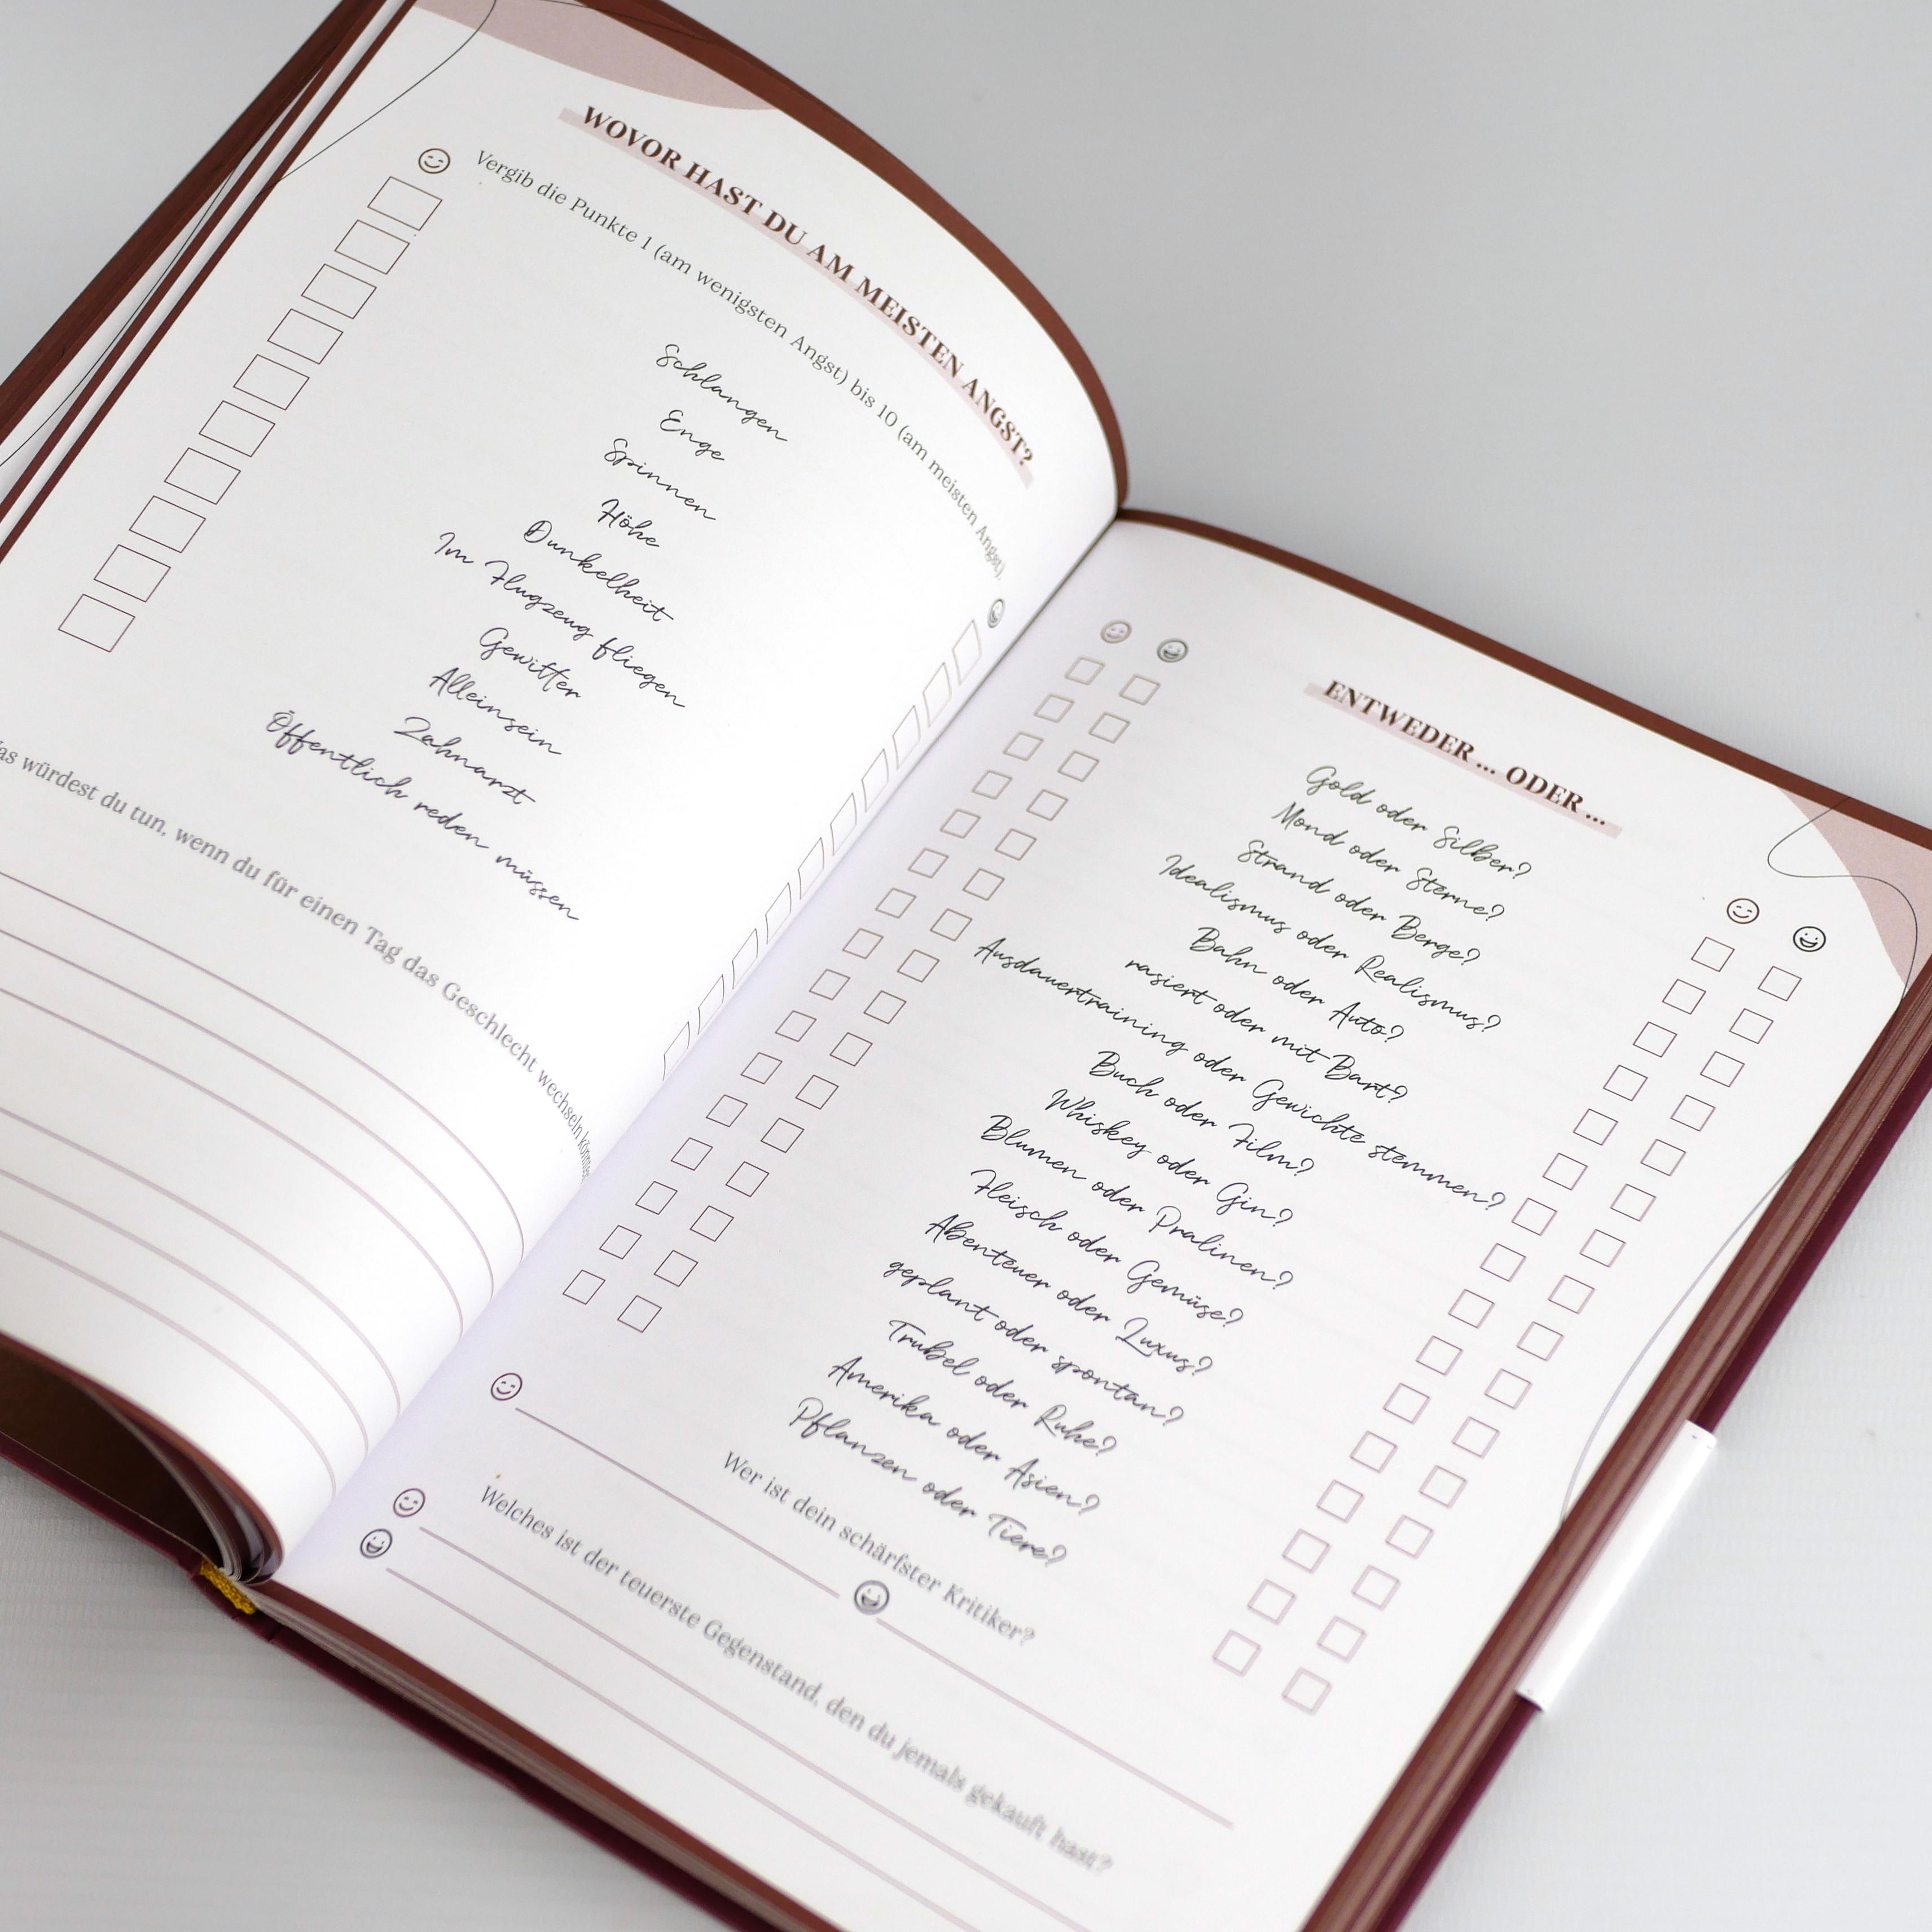 WOVOR HAST DU AM MEISTEN ANGST?
Vergib die Punkte 1 (am wenigsten Angst) bis 10 (am meisten Angst).
Schlangen
Enge
Spinnen
Höhe
Dunkelheit
Im Flugzeug fliegen
Gewitter
Alleinsein
Zahnarzt
Öffentlich reden müssen
würdest du tun, wenn du für einen Tag das Geschlecht wechseln
ENTWEDER ... ODER ...
Gold oder Silber?
Mond oder Sterne?
Strand oder Berge?
Idealismus oder Realismus?
Bahn oder Auto?
rasiert oder mit Bart?
Ausdauertraining oder Gewichte stemmen?
Buch oder Film?
Whiskey oder Gin?
Blumen oder Pralinen?
Fleisch oder Gemüse?
Abenteuer oder Luxus?
geplant oder spontan?
Trubel oder Ruhe?
Amerika oder Asien?
Pflanzen oder Tiere?
Wer ist dein schärfster Kritiker?
Welches ist der teuerste Gegenstand, den du jemals gekauft hast?